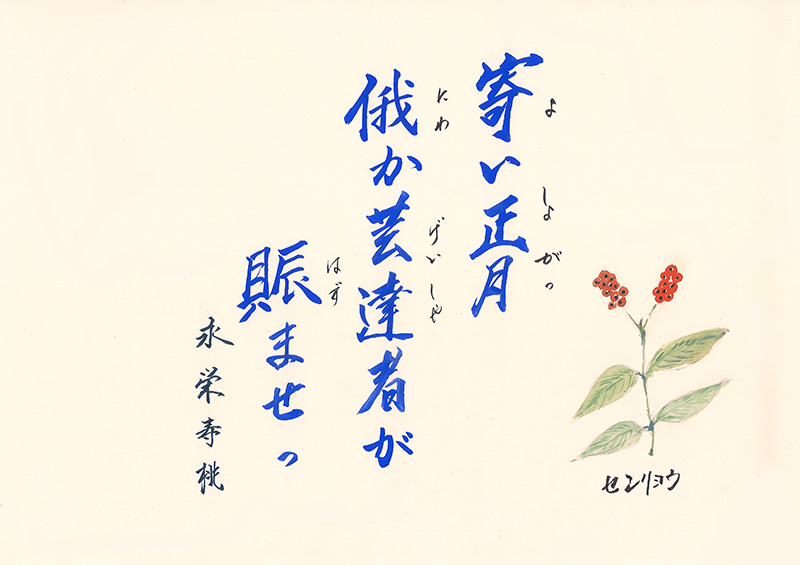 寄い正月
よ しょがつ
俄か芸達者が
にわ げいしゃ
賑ませっ
はず
永栄寿桃
センリョウ